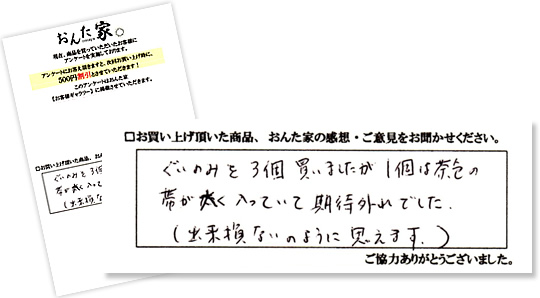 おんた家
現在、商品を買っていただいたお客様に
アンケートを実施しております。
アンケートにお答え頂きますと、次回お買い上げ時に、
500円割引とさせていただきます!
このアンケートはおんた家
【お客様ギャラリー】に掲載させていただきます。
□お買い上げ頂いた商品、おん
ぐいのみを3個
帯が太く入って
(出来損な
□お買い上げ頂いた商品、おんた家の感想・ご意見をお聞かせください。
ぐいのみを3個買いましたが1個は茶色の
帯が太く入っていて期待外れでした.
(出来損ないのように思えます.)
ご協力ありがとうございました。